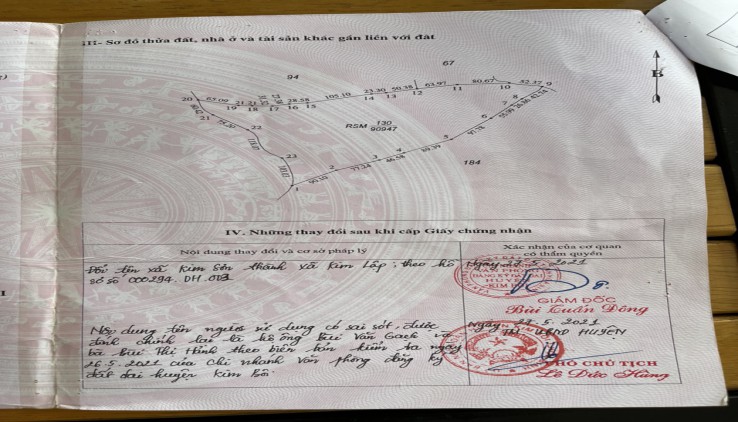 III- Sơ đồ thửa đất, nhà ở và tài sản khác gắn liền với đất
67
94
B
20 63.09 19 21.21 18 17 16 28.58 15 105.10 14 23.30 13 50.38 12 63.97 11 80.67 10 52.17 9
21
22
23
RSM 130
90947
8
7
6
5
4
3
2
1
184
IV. Những thay đổi sau khi cấp Giấy chứng nhận
Nội dung thay đổi và cơ sở pháp lý
Xác nhận của cơ quan
có thẩm quyền
Đổi tên xã Kim Sơn thành xã Kim Lập, theo hồ
sơ số 000294. DH. 013
GIÁM ĐỐC
Bùi Tuấn Dũng
Nội dung tên người sử dụng có sai sót, được
đính chính lại là hộ ông Bùi Văn Gạch và
bà Bùi Thị Hánh theo biên bản kiểm tra ngày
26.5.2021 của Chi nhánh Văn phòng đăng ký
đất đai huyện Kim Bôi.
Ngày 27.5.2021
TM. UBND HUYỆN
PHÓ CHỦ TỊCH
Lê Đức Hùng